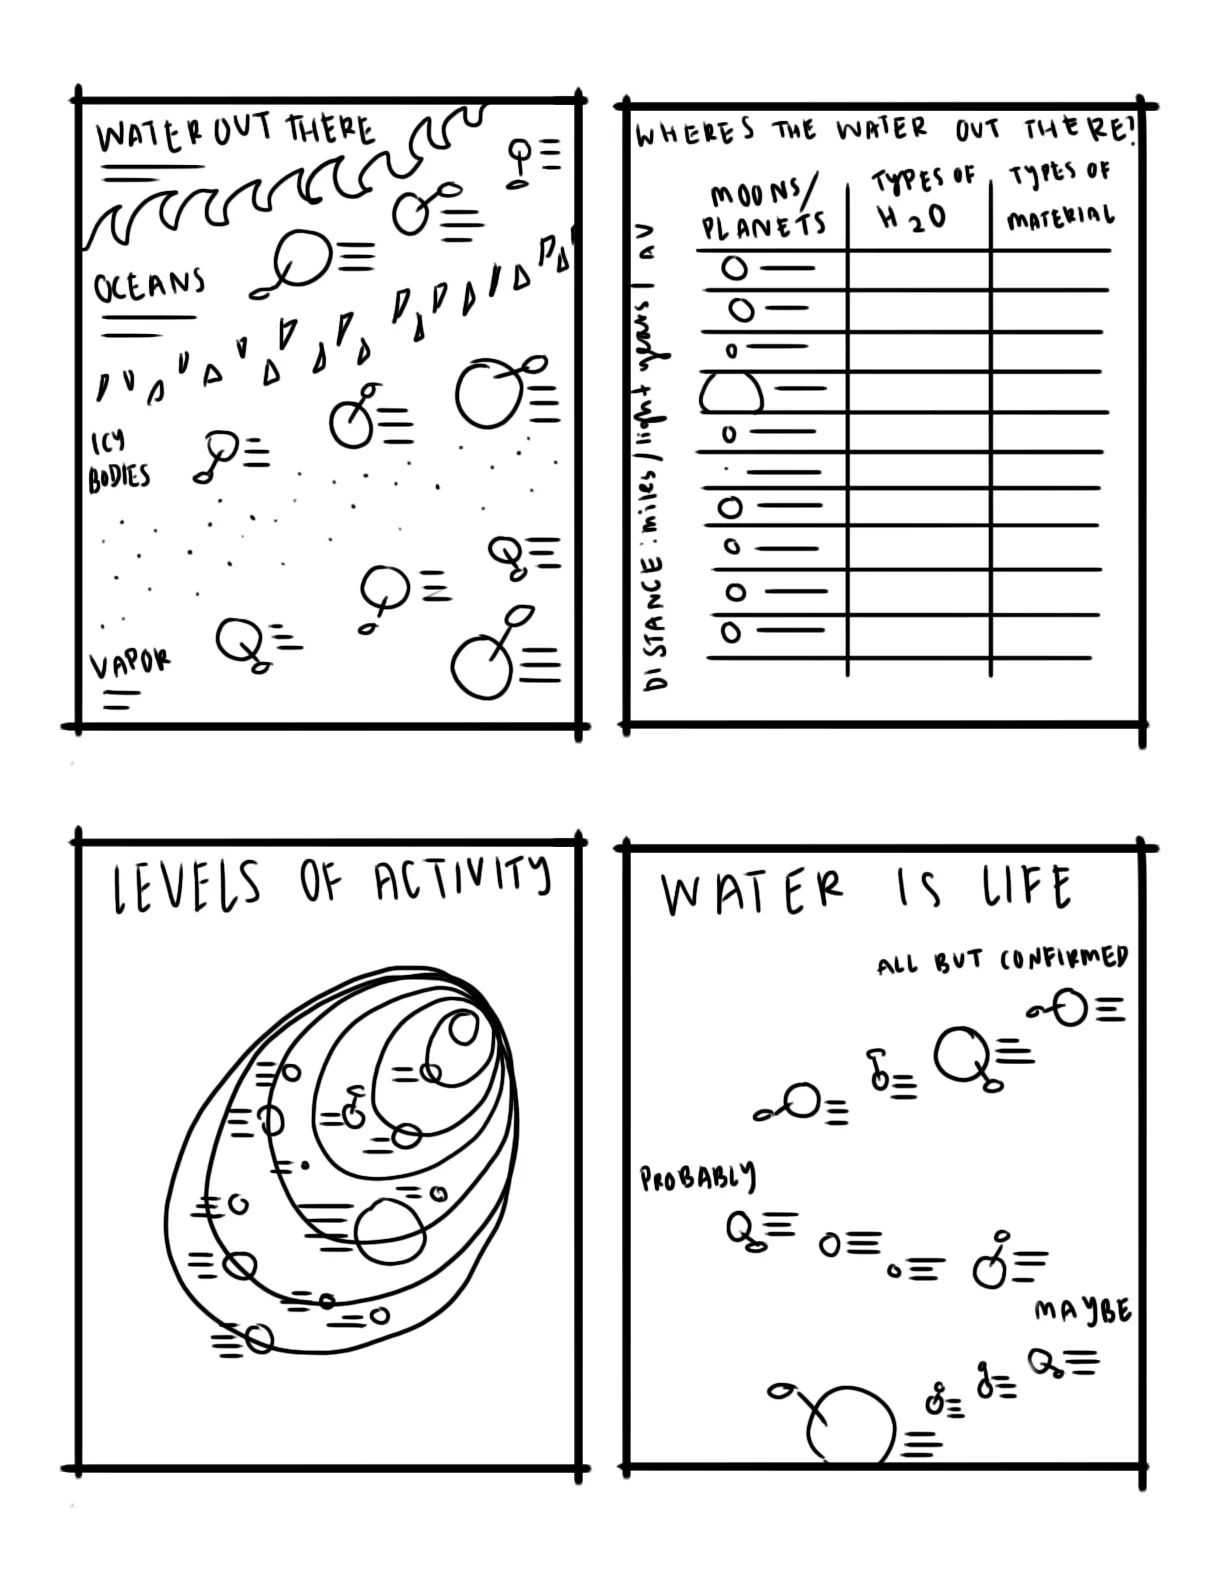 WATER OUT THERE
OCEANS
ICY
BODIES
VAPOR
WHERE'S THE WATER OUT THERE?
MOONS/
PLANETS
TYPES OF
H2O
TYPES OF
MATERIAL
DISTANCE: miles/light years | AV
LEVELS OF ACTIVITY
WATER IS LIFE
ALL BUT CONFIRMED
PROBABLY
MAYBE